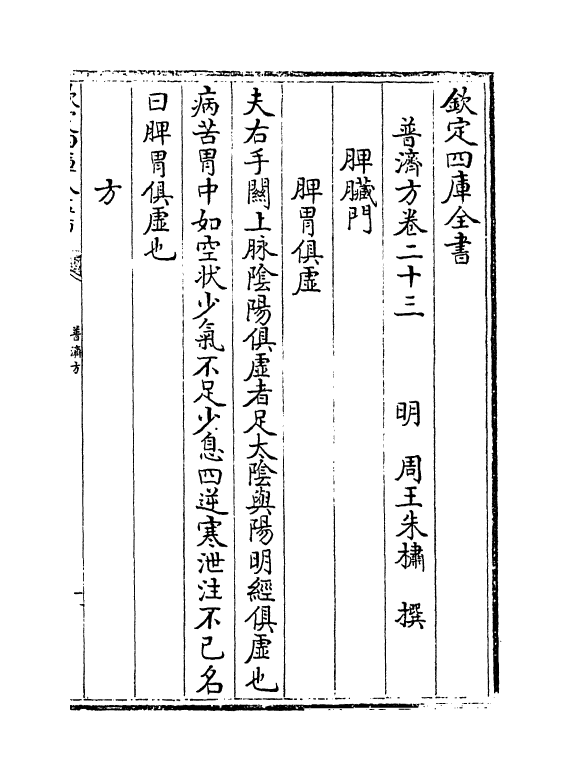 欽定四庫全書
普濟方卷二十三　　明　周王朱橚　撰
脾臟門
脾胃俱虛
夫右手關上脉陰陽俱虛者足太陰與陽明經俱虛也
病苦胃中如空狀少氣不足少息四逆寒泄注不已名
曰脾胃俱虛也
方
普濟方
一